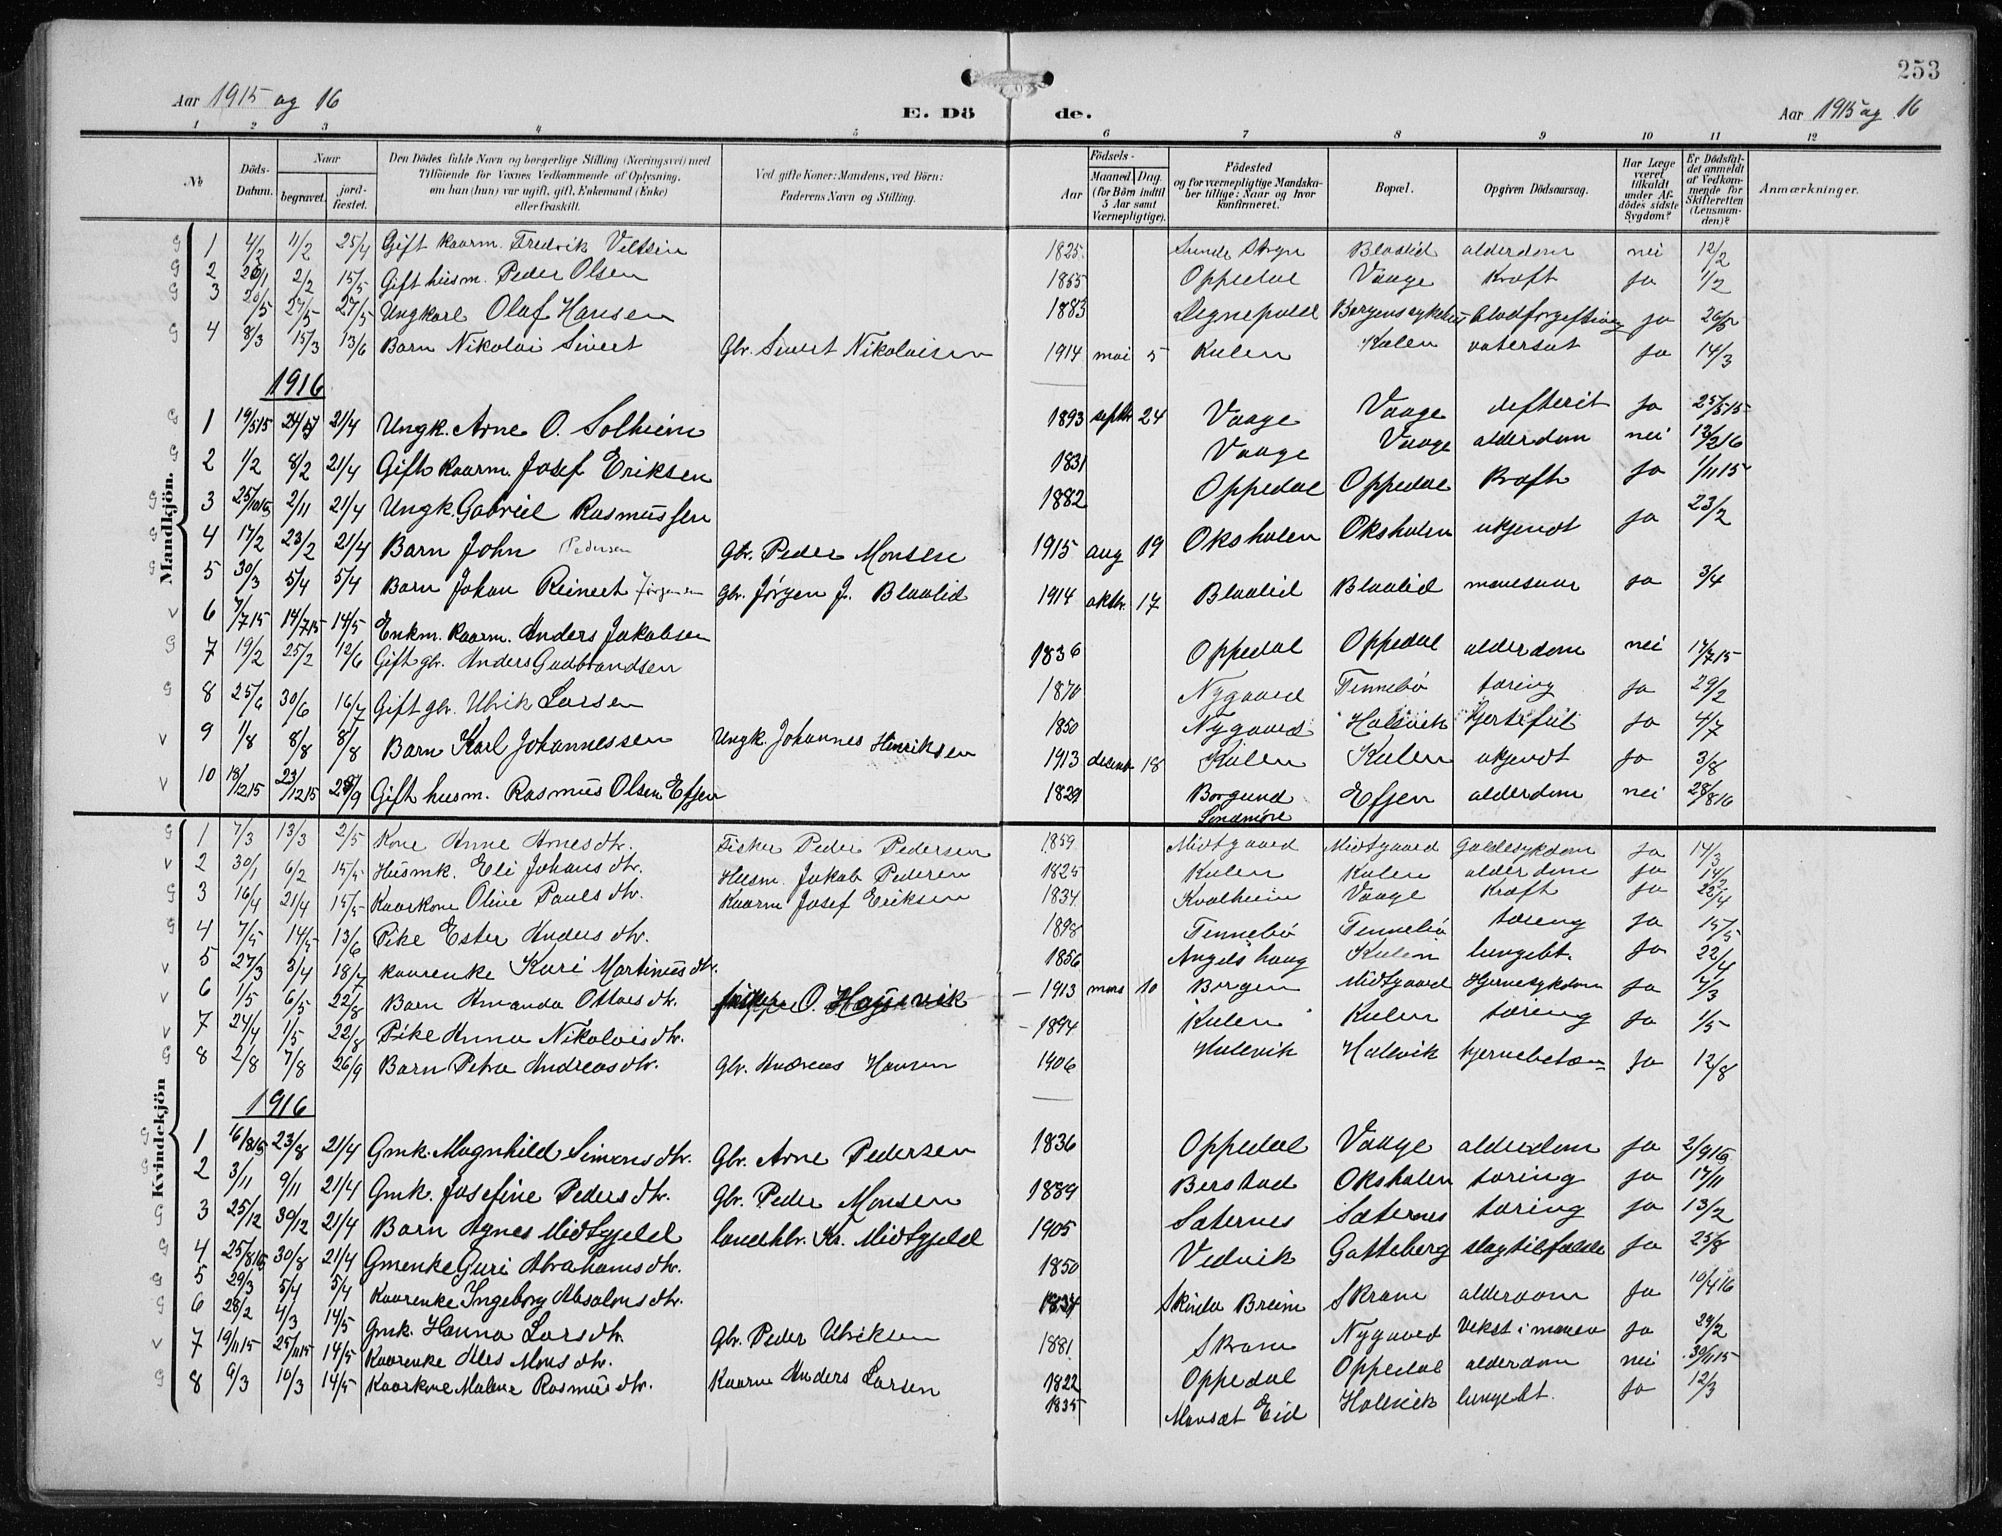 253
Aar 1915 og 16
E. Dö de.
Aar 1915 og 16
1 2 3 4 5 6 7 8 9 10 11 12
No
Döds-Datum.
Naar
begravet.
jord-fæstet.
Den Dödes fulde Navn og borgerlige Stilling (Næringsvei) med
Tilföiende for Voxnes Vedkommende af Oplysning,
om han (hun) var ugift, gift, Enkemand (Enke)
eller fraskilt.
Ved gifte Koner: Mandens, ved Börn:
Faderens Navn og Stilling.
Födsels-
Aar
Maaned. Dag.
(for Börn indtil
5 Aar samt
Værnepligtige).
Födested
og for værnepligtige Mandska-
ber tillige: Naar og hvor
konfirmeret.
Bopæl.
Opgiven Dödsaarsag.
Har Læge
været
tilkaldt
under Af-
dödes sidste
Sygdom?
Er Dödsfal-
det anmeldt
af Vedkom-
mende for
Skifteretten
(Lensman-
den)?
Anmærkninger.
Mandkjön.
1 4/2 11/2 25/4 Gift kaarm. Fredrik 1825 Blaalid alderdom nei 12/2
2 2/2 15/5 Gift husm. Peder Olsen 1855 Oppedal Vaage Kræft ja 1/2
3 20/5 27/5 27/5 Ungkarl Olaf Hansen 1883 Degnepold Bergens sykehus blodforgiftning ja 26/5
4 8/3 15/3 13/6 Barn Nikolai Sivert Gbr. Sivert Nikolaisen 1914 mai 5 Kulen Kulen vatersut ja 14/3
1916
1 19/5 15 21/4 Ungk. Arne O. Solheim 1893 septbr 24 Vaage Vaage defterit ja 25/5 15
2 1/2 8/2 21/4 Gift kaarm. Josef Eriksen 1831 Vaage Vaage alderdom nei 12/2 16
3 25/10 15 2/11 21/4 Ungk. Gabriel Rasmussen 1882 Oppedal Oppedal Kræft ja 1/11 15
4 17/2 23/2 21/4 Barn John Pedersen Gbr. Peder Monsen 1915 aug 19 Oksholen Oksholen ukjendt ja 23/2
5 30/3 5/4 5/4 Barn Johan Reinert Jørgensen gbr. Jørgen J. Blaalid 1914 oktbr. 17 Blaalid Blaalid mavesaar ja 3/4
6 7/7 15 14/7 15 14/5 Enkm. kaarm. Anders Jakobsen 1836 Oppedal Oppedal alderdom nei 17/7 15
7 19/2 25/2 12/6 Gift gbr. Anders Gudbrandsen 1870 Nygaard Tennebø tæring ja 29/2
8 25/6 30/6 16/7 Gift gbr. Ulrik Larsen 1850 Nygaard Halsvik hjertefeil ja 4/7
9 1/8 8/8 8/8 Barn Karl Johannessen Ungk. Johannes Henriksen 1913 decembr 18 Kulen Kulen ukjendt ja 3/8
10 18/12 15 23/12 15 Gift husm. Rasmus Olsen Efjen 1829 Borgund Søndmøre Efjen alderdom nei 28/8 16
Kvindekjön
1 7/3 13/3 2/5 Kone Anne Arnesdtr. Fisker Peder Pedersen 1859 Midtgaard Midtgaard Galdesykdom ja 14/3
2 30/1 6/2 15/5 Husmk. Eli Johansdtr. Husm. Jakob Pedersen 1825 Kulen Kulen alderdom ja
3 16/4 21/4 15/5 Kaarkone Oline Paulsdtr. Kaarm Josef Eriksen 1834 Kvalheim Vaage Kræft ja 22/4
4 7/5 14/5 13/6 Pike Ester Andersdtr. 1898 Tennebø Tennebø tæring ja 15/5
5 27/3 18/7 kaarenke Kari Martinusdtr. 1856 Angelshaug Kulen lungebt. ja 22/4
6 1/5 6/5 22/8 Barn Amanda Ottarsdtr. O. Høysvik 1913 mars 10 Bergen Midtgaard Hjernesykdom ja
7 24/4 1/5 22/8 Pike Anna Nikolaisdtr. 1894 Kulen Kulen tæring ja 1/5
8 2/8 7/8 26/9 Barn Petra Andreasdtr. Gbr. Andreas Hansen 1906 Halsvik Halsvik hjernebetæn= ja 12/8
1916
1 16/8 15 23/8 21/4 Gmk. Magnhild Simonsdtr. Gbr. Arne Pedersen 1836 Oppedal Vaage alderdom ja 2/9 15
2 3/11 9/11 21/4 Gmk. Josefine Pedersdtr. Gbr. Peder Monsen 1889 Berstad Oksholen tæring ja 17/11
3 25/12 30/12 21/4 Barn Agnes Midtgjeld landhbr. Kr. Midtgjeld 1905 Sæternes Sæternes tæring ja 13/2
4 25/8 15 30/8 21/4 Gmenke Guri Abrahamsdtr. 1850 Vedvik Gatteberg slagtilfælde ja 25/8
5 29/3 5/4 5/4 Kaarenke Ingeborg Absalonsdtr. 1834 Breim Skram alderdom ja 10/4 16
6 28/2 4/3 14/5 Gmk. Hanna Larsdtr. Gbr. Peder Ulriksen 1881 Skram Nygaard Vekst i maven ja 29/2
7 19/11 15 25/11 15 14/5 Kaarenke Ales Monsdtr. 1822 Oppedal Oppedal alderdom nei 30/11 15
8 9/3 10/3 14/5 Kaarkone Malene Rasmusdtr. Kaarm Anders Larsen 1835 Eid Halsvik lungebt. ja 12/3